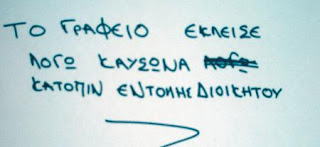 ΤΟ ΓΡΑΦΕΙΟ ΕΚΛΕΙΣΕ
ΛΟΓΩ ΚΑΥΣΩΝΑ
ΚΑΤΟΠΙΝ ΕΝΤΟΛΗΣ ΔΙΟΙΚΗΤΟΥ